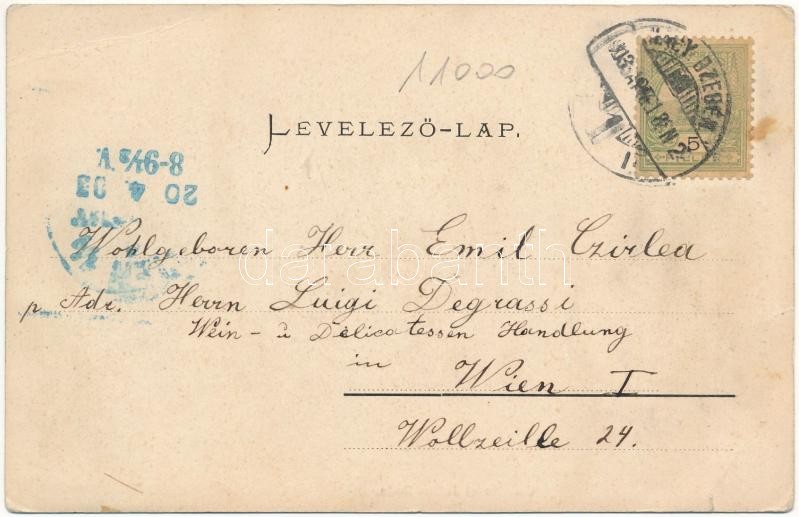 11000
LEVELEZŐ-LAP.
5
20 4. 03
8-9½ V.
Wohlgeboren Herr Emil Czirlea
p Adr. Herrn Luigi Degrassi
Wein- u Delicatessen Handlung
in
Wien I
Wollzeille 24.
darabanth